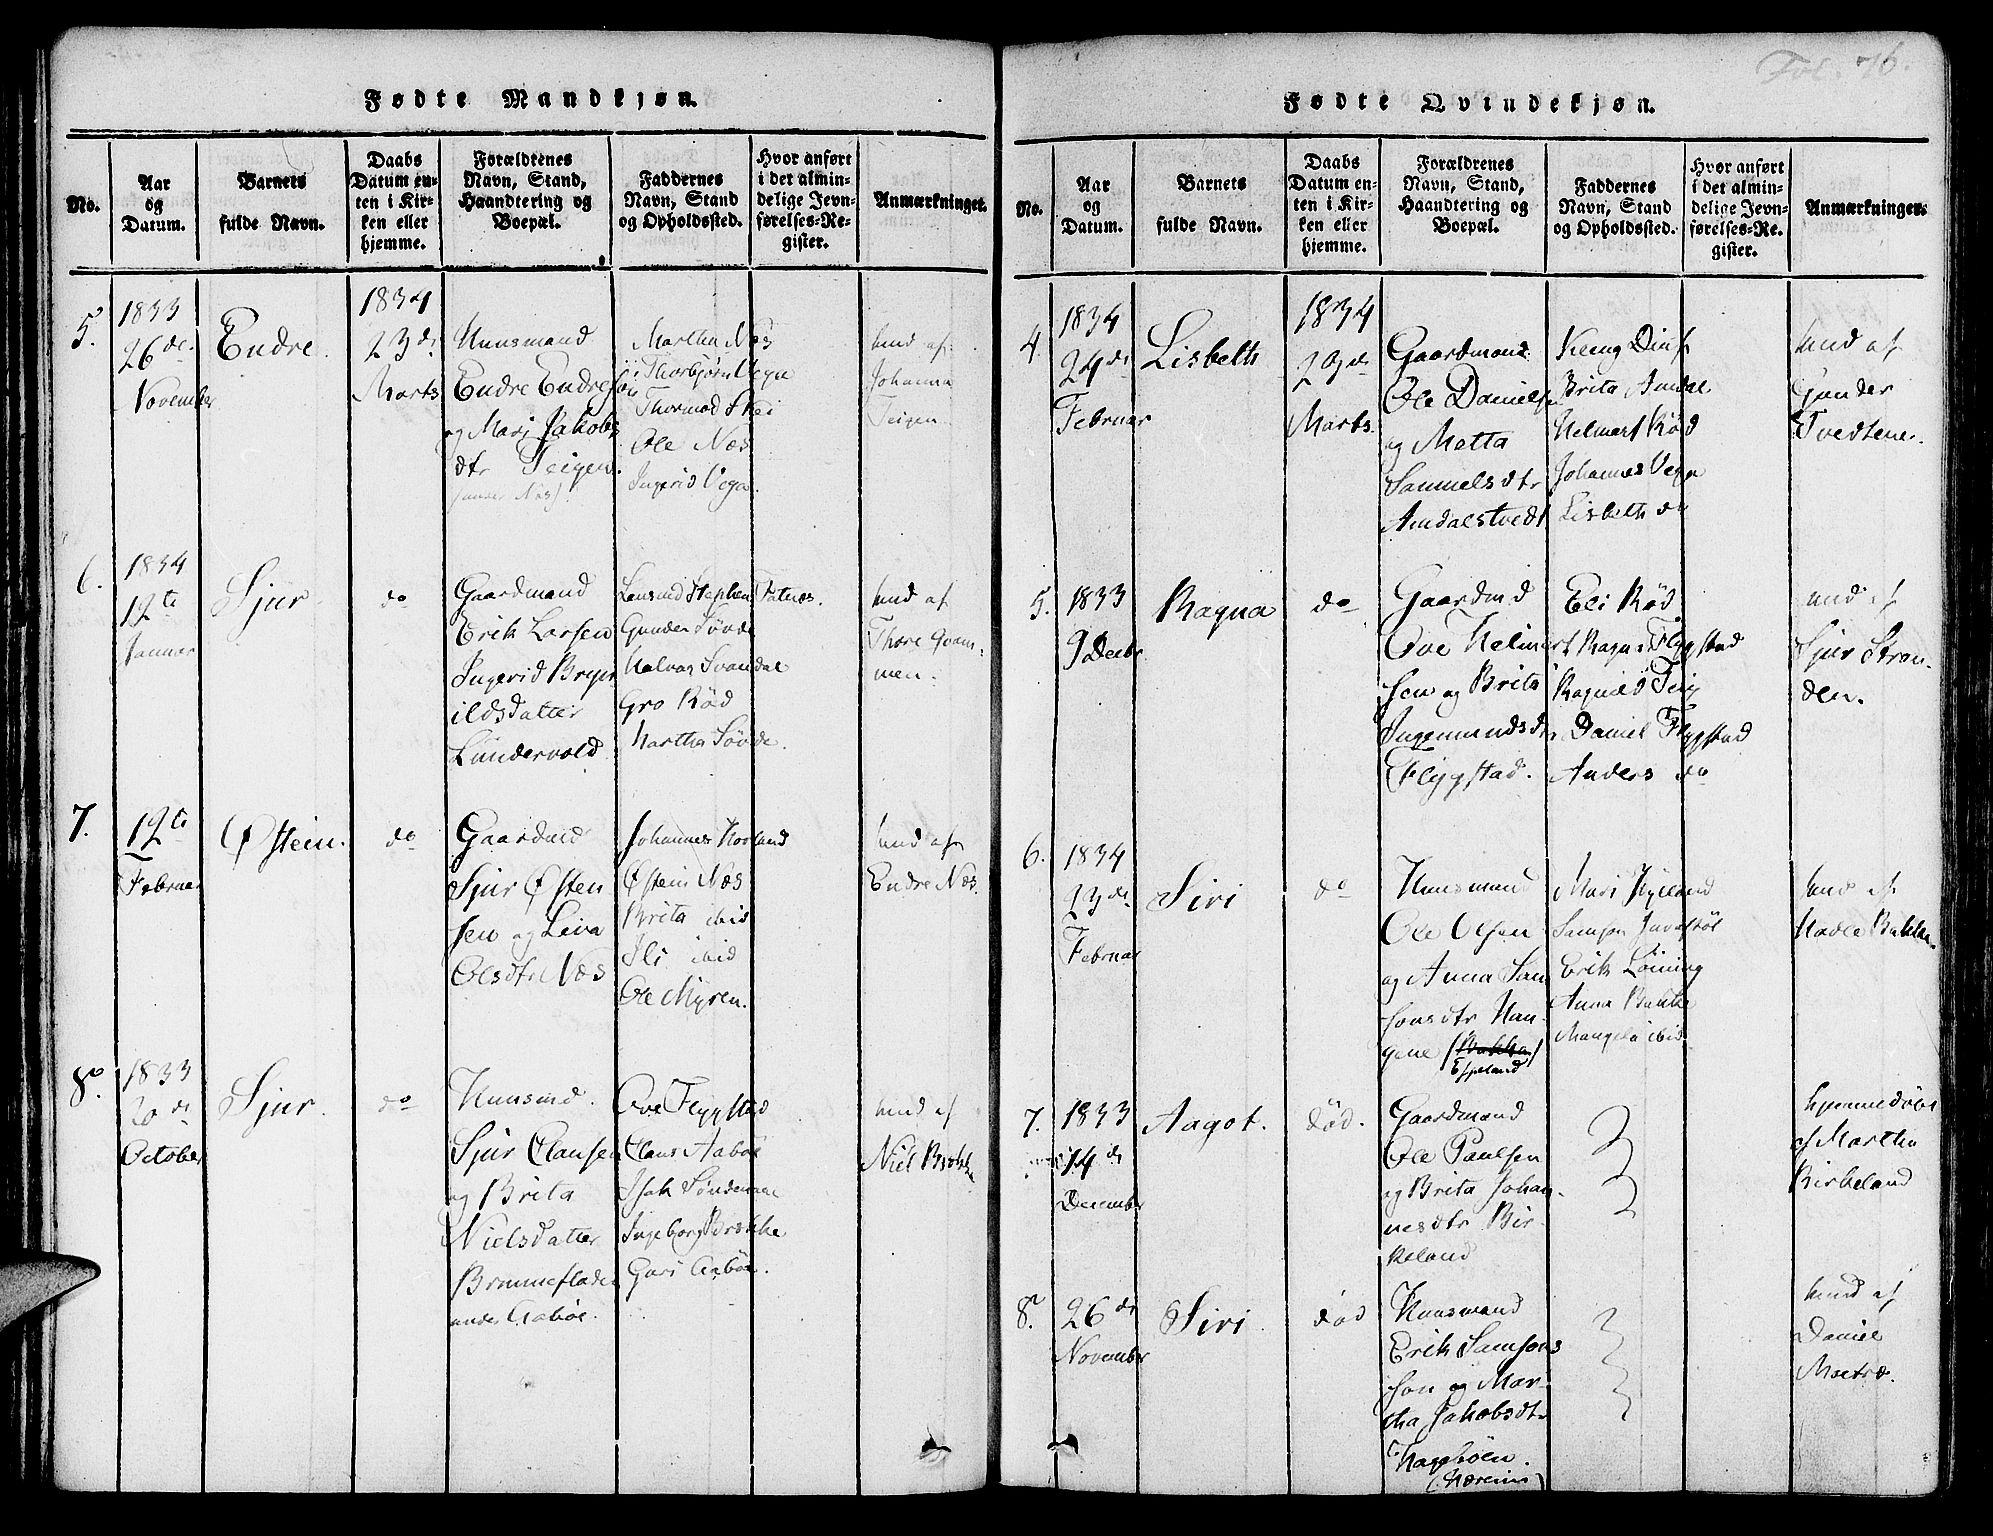 Fol. 76.
Fødte Mandkjøn.
No.
Aar
og
Datum.
Barnets
fulde Navn.
Daabs
Datum en-
ten i Kir-
ken eller
hjemme.
Forældrenes
Navn, Stand,
Haandtering og
Boepæl.
Faddernes
Navn, Stand
og Opholdssted.
Hvor anført
i det almin-
delige Jevn-
førelses-Re-
gister.
Anmærkninger.
5.
1833
26de
November
Endre.
1834
23de
Marts
Huusmand
Endre Endresen
og Mari Jakobs
dtr Teigen.
(under Næs)
Martha Næs
Thorbjørn Vega
Thormod Skei
Ole Næs
Ingerid Vega.
hmd af
Johanna
Teigen.
6.
1834
12te
Januar
Sjur
do
Gaardmand
Erik Larsen
Ingerid Bryn
ildsdatter
Lundervold
Lensmd Stephen Fatnes.
Gunder Søvde
Halvor Svandal
Gro Rød
Martha Søvde.
hmd af
Thore Qvam-
men.
7.
12te
Februar
Østein.
do
Gaardmd
Sjur Østen
sen og Leva
Olsdtr Næs
Johannes Hovland
Østein Næs
Brita ibid
Ili ibid
Ole Myren.
hmd af
Endre Næs.
8.
1833
30de
October
Sjur.
do
Huusmd.
Sjur Clausen
og Brita
Nielsdatter
Brommeflader
under Aabøe.
Ove Flygstad
Claus Aabøe
Isak Søndenaa
Ingeborg Brække
Guri Aabøe.
hmd af
Niel Brække
Fødte Qvindekjøn.
No.
Aar
og
Datum.
Barnets
fulde Navn.
Daabs
Datum en-
ten i Kir-
ken eller
hjemme.
Forældrenes
Navn, Stand,
Haandtering og
Boepæl.
Faddernes
Navn, Stand
og Opholdssted.
Hvor anført
i det almin-
delige Jevn-
førelses-Re-
gister.
Anmærkninger.
4
1834
24de
Februar
Lisbeth
1834
23de
Marts.
Gaardmand
Ole Danielsen
og Metta
Samuelsdtr
Amdalstvedt
Brita Amdal
Helmert Rød
Johannes Vega
Lisbeth do
hmd af
Gunder
Tvedtene.
5.
1833
9 Decbr
Ragna
do
Gaardmd
Ove Helmert
sen og Brita
Ingemundsdtr
Flygstad.
Eli Rød
Ragna Flygstad
Ragnild Teig
Daniel Flygstad
Anders do
hmd af
Sjur Stran-
den.
6.
1834
23de
Februar
Siri
do
Huusmand
Ole Olsen
og Anna Sam
sonsdtr Hau-
gene (Bakka)
Espeland
Mari Hyland
Samson
Erik Løining
Anna Bakke
Mangela ibid
hmd af
Hadle Bakke.
7.
1833
14de
December
Aagot.
død.
Gaardmand
Ole Paulsen
og Brita Johan-
nesdtr Bir-
keland
hjemmedøbt
af Martha
Birkeland
8.
26de
November
Siri
død
Huusmand
Erik Samsons
søn og Mar-
tha Jakobsdtr
Haghøien.
(Hæreim)
hmd af
Daniel
Moetræ.